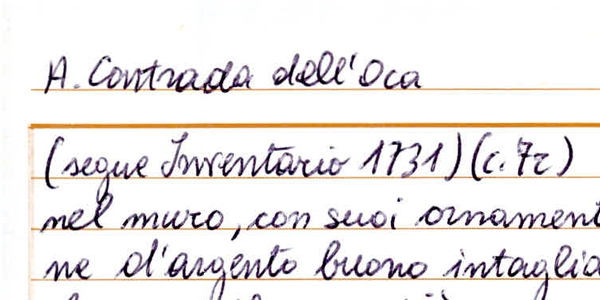 A. Contrada dell'Oca
(segue Inventario 1731) (c. 7r)
nel muro, con suoi ornament
ne d'argento buono intaglia